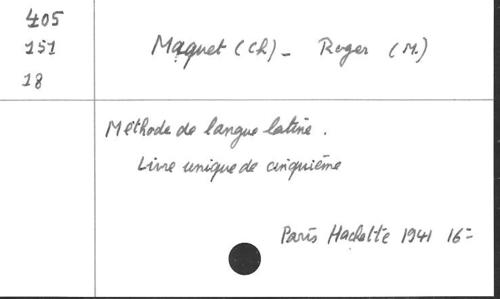 405
151
18
Maquet (Ch) - Roger (M.)
Méthode de langue latine.
Livre unique de cinquième
Paris Hachette 1941 16=